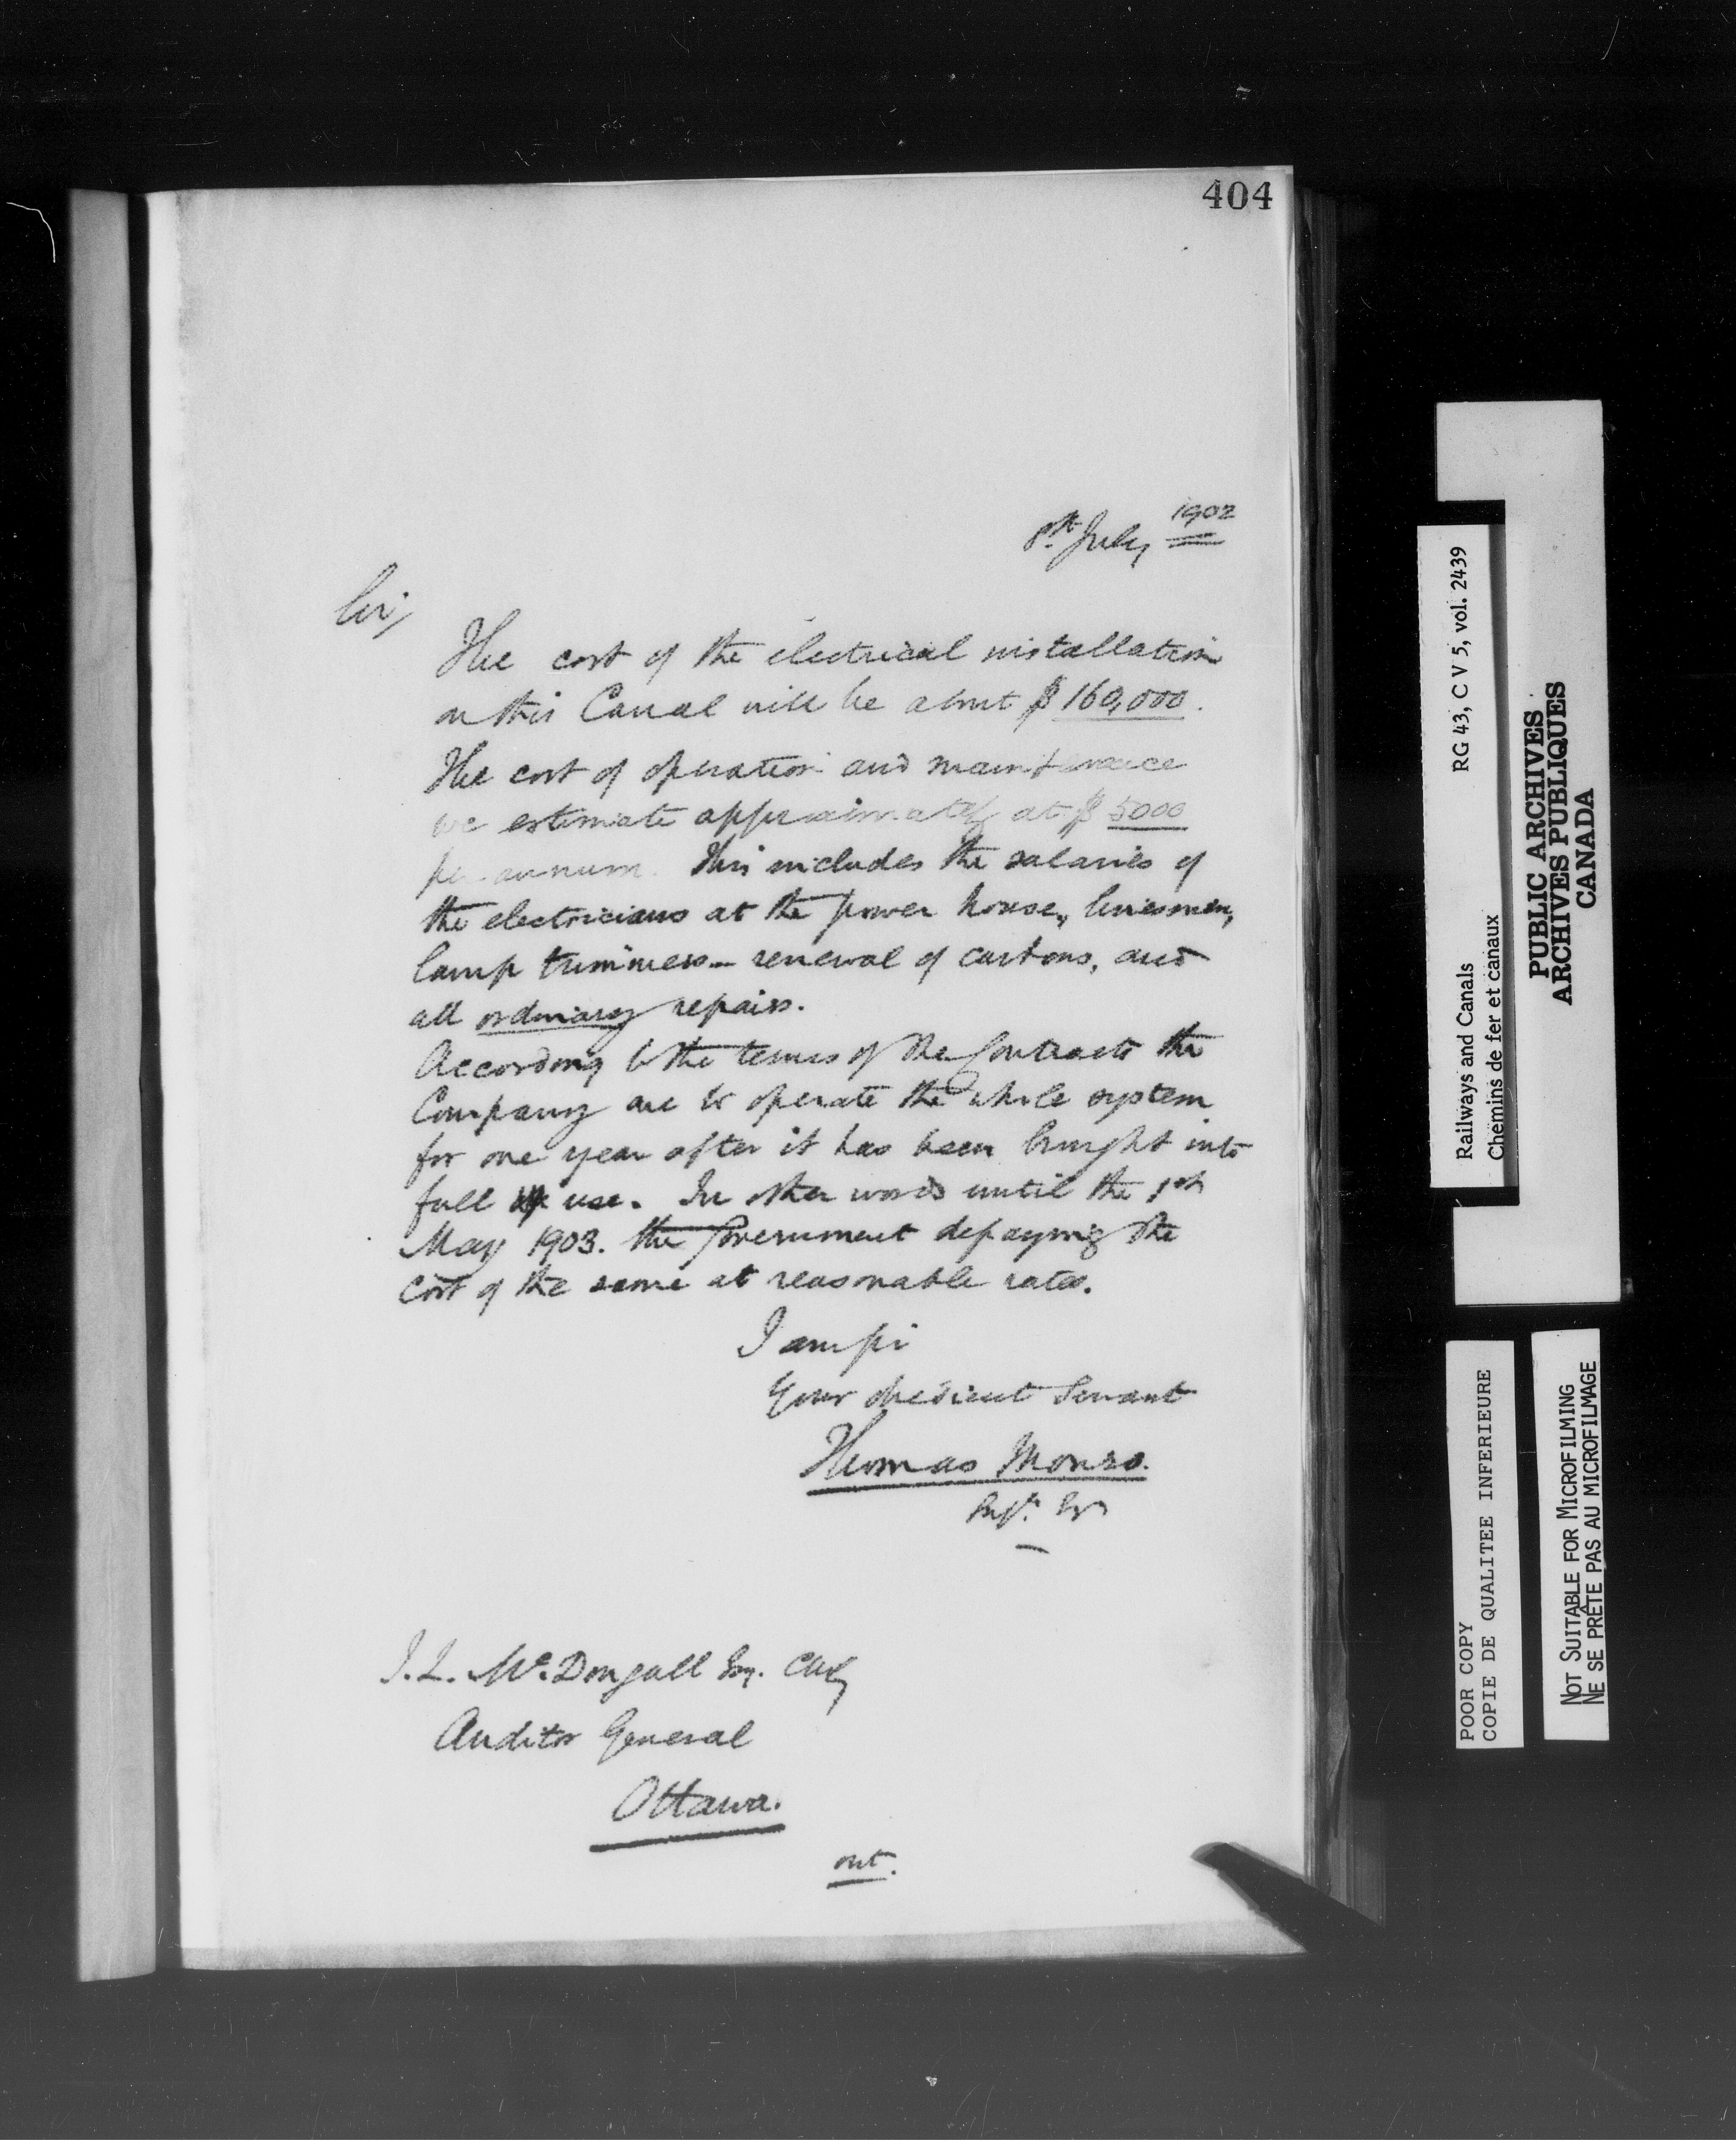 404
8th July, 1902
Sir,
The cost of the electrical installation
on this Canal will be about $160,000.
The cost of operation and maintenance
we estimate approximately at $5000
per annum. This includes the salaries of
the electricians at the power house, linesmen,
lamp trimmers - renewal of carbons, and
all ordinary repairs.
According to the terms of the Contracts the
Company are to operate the whole system
for one year after it has been brought into
full use. In other words until the 1st
May 1903. the Government defraying the
cost of the same at reasonable rates.
I am Sir
Your obedient Servant
Thomas Monro.
J. L. McDougall Esq. CMG
Auditor General
Ottawa.
Railways and Canals RG 43, C V 5, vol. 2439
Chemins de fer et canaux
PUBLIC ARCHIVES
ARCHIVES PUBLIQUES
CANADA
POOR COPY
COPIE DE QUALITEE INFERIEURE
NOT SUITABLE FOR MICROFILMING
NE SE PRÊTE PAS AU MICROFILMAGE